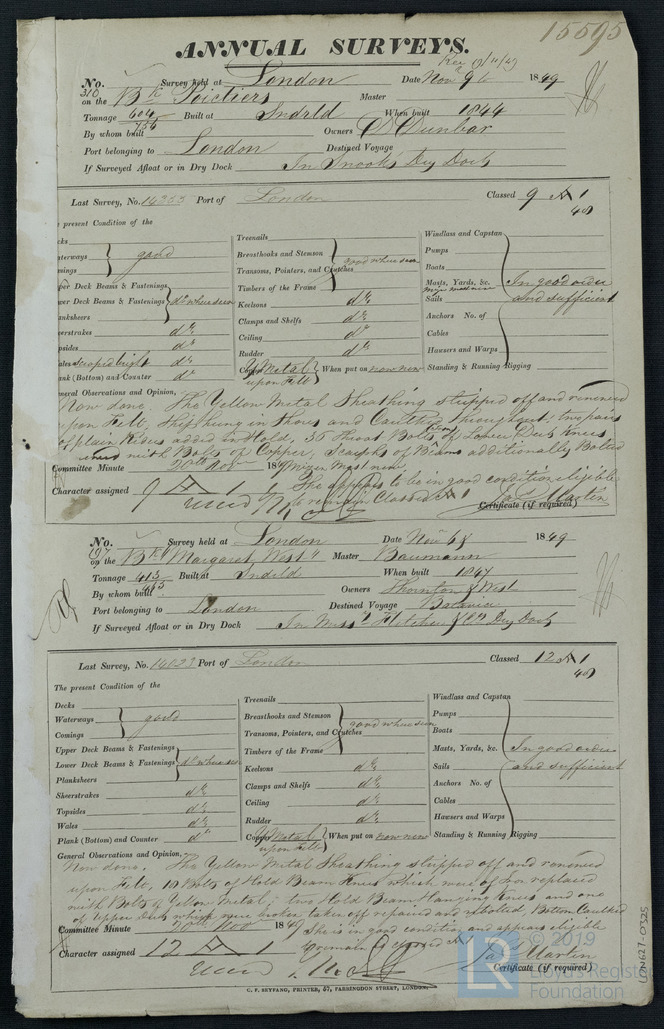 15595
ANNUAL SURVEYS.
No. 310 Survey held at London Date Nov 9 1849
on the Bk Poictiers Master
Tonnage 604 Built at Sndrld When built 1844
By whom built Owners D Dunbar
Port belonging to London Destined Voyage
If Surveyed Afloat or in Dry Dock In Snooks Dry Dock
Last Survey, No. 14353 Port of London Classed 9 A 1
48
present Condition of the
cks
aterways good
mings
pper Deck Beams & Fastenings
wer Deck Beams & Fastenings do where seen
anksheers
eerstrakes do
psides do
ales scraped bright do
ank (Bottom) and Counter do
Treenails
Breasthooks and Stemson good where seen
Transoms, Pointers, and Crutches
Timbers of the Frame
Keelsons do
Clamps and Shelfs do
Ceiling do
Rudder do
Copper Y Metal upon Felt When put on now new
Windlass and Capstan
Pumps
Boats
Masts, Yards, &c. In good order
Sails and sufficient
Anchors No. of
Cables
Hawsers and Warps
Standing & Running Rigging
General Observations and Opinion,
Now done. The Yellow Metal Sheathing stripped off and renewed
upon Felt, Ship hung in Shores and Caulked throughout; two pairs
of plain Riders added in Hold, 36 Throat Bolts of Lower Deck Knees
with Bolts of Copper, Scarphs of Beams additionally Bolted
Committee Minute 20th Nov 1849 Mizen Mast new.
She appears to be in good condition eligible
Character assigned 9 A 1 to remain Classed A 1
Jas Martin
Certificate (if required)
No. 197 Survey held at London Date Nov 68 1849
on the Bk "Margaret West" Master Baumann
Tonnage 413 Built at Sndrld When built 1847
By whom built Owners Thornton & West
Port belonging to London Destined Voyage Batavia
If Surveyed Afloat or in Dry Dock In Messrs Fletcher & Co Dry Dock
Last Survey, No. 14623 Port of London Classed 12 A 1
48
The present Condition of the
Decks
Waterways good
Comings
Upper Deck Beams & Fastenings
Lower Deck Beams & Fastenings do where seen
Planksheers
Sheerstrakes do
Topsides do
Wales do
Plank (Bottom) and Counter do
Treenails
Breasthooks and Stemson good where seen
Transoms, Pointers, and Crutches
Timbers of the Frame
Keelsons do
Clamps and Shelfs do
Ceiling do
Rudder do
Copper Y Metal upon Felt When put on now new
Windlass and Capstan
Pumps
Boats
Masts, Yards, &c. In good order
Sails and sufficient
Anchors No. of
Cables
Hawsers and Warps
Standing & Running Rigging
General Observations and Opinion,
Now done. The Yellow Metal Sheathing stripped off and renewed
upon Felt, 10 Bolts of Hold Beam Knees which were of Iron replaced
with Bolts of Yellow Metal; two Hold Beam Hanging Knees and one
of Upper Deck which were broken taken off repaired and rebolted, Bottom Caulked
Committee Minute 20th Nov 1849 She is in good condition and appears eligible
to remain as classed A 1
Character assigned 12 A 1
Jas Martin
Certificate (if required)
C. F. SEYFANG, PRINTER, 57, FARRINGDON STREET, LONDON.
LR © 2019
Lloyd's Register
Foundation
LON627-0325